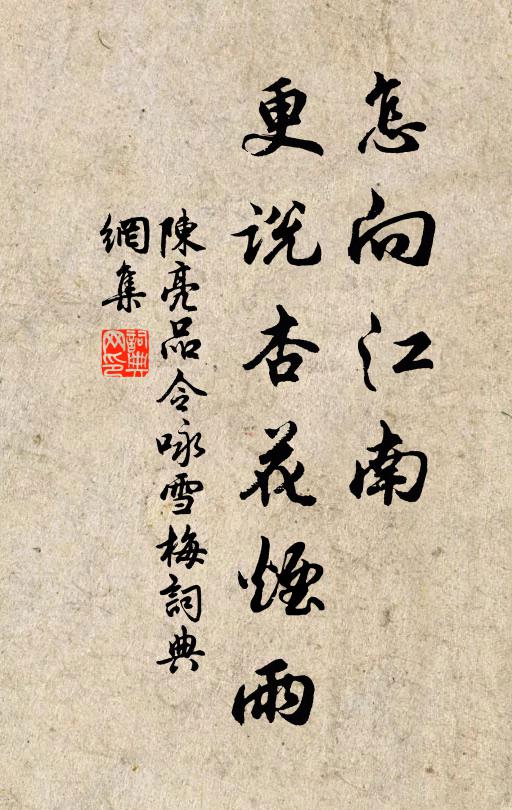 怎向江南
更说杏花煙雨
陳亮品令咏雪梅詞典
網集
詞典
网印